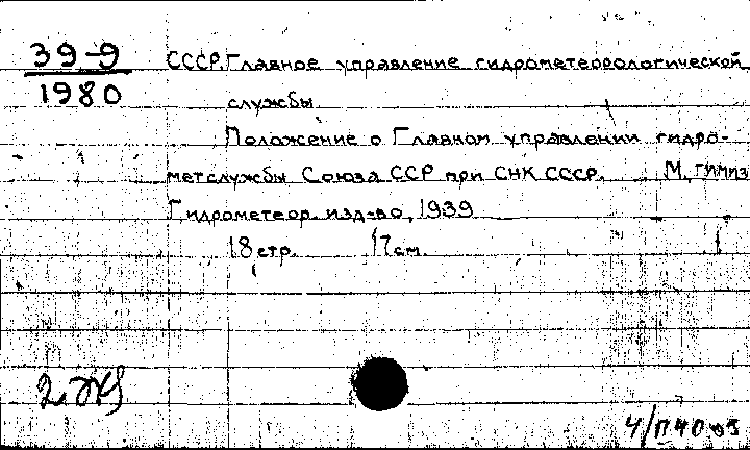 39-9
1980
СССР. Главное управление гидрометеорологической
службы.
Положение о Главном управлении гидро-
метслужбы Союза ССР при СНК СССР. М, ГИМИЗ
Гидрометеор. изд-во, 1939
18 стр. 17 см.